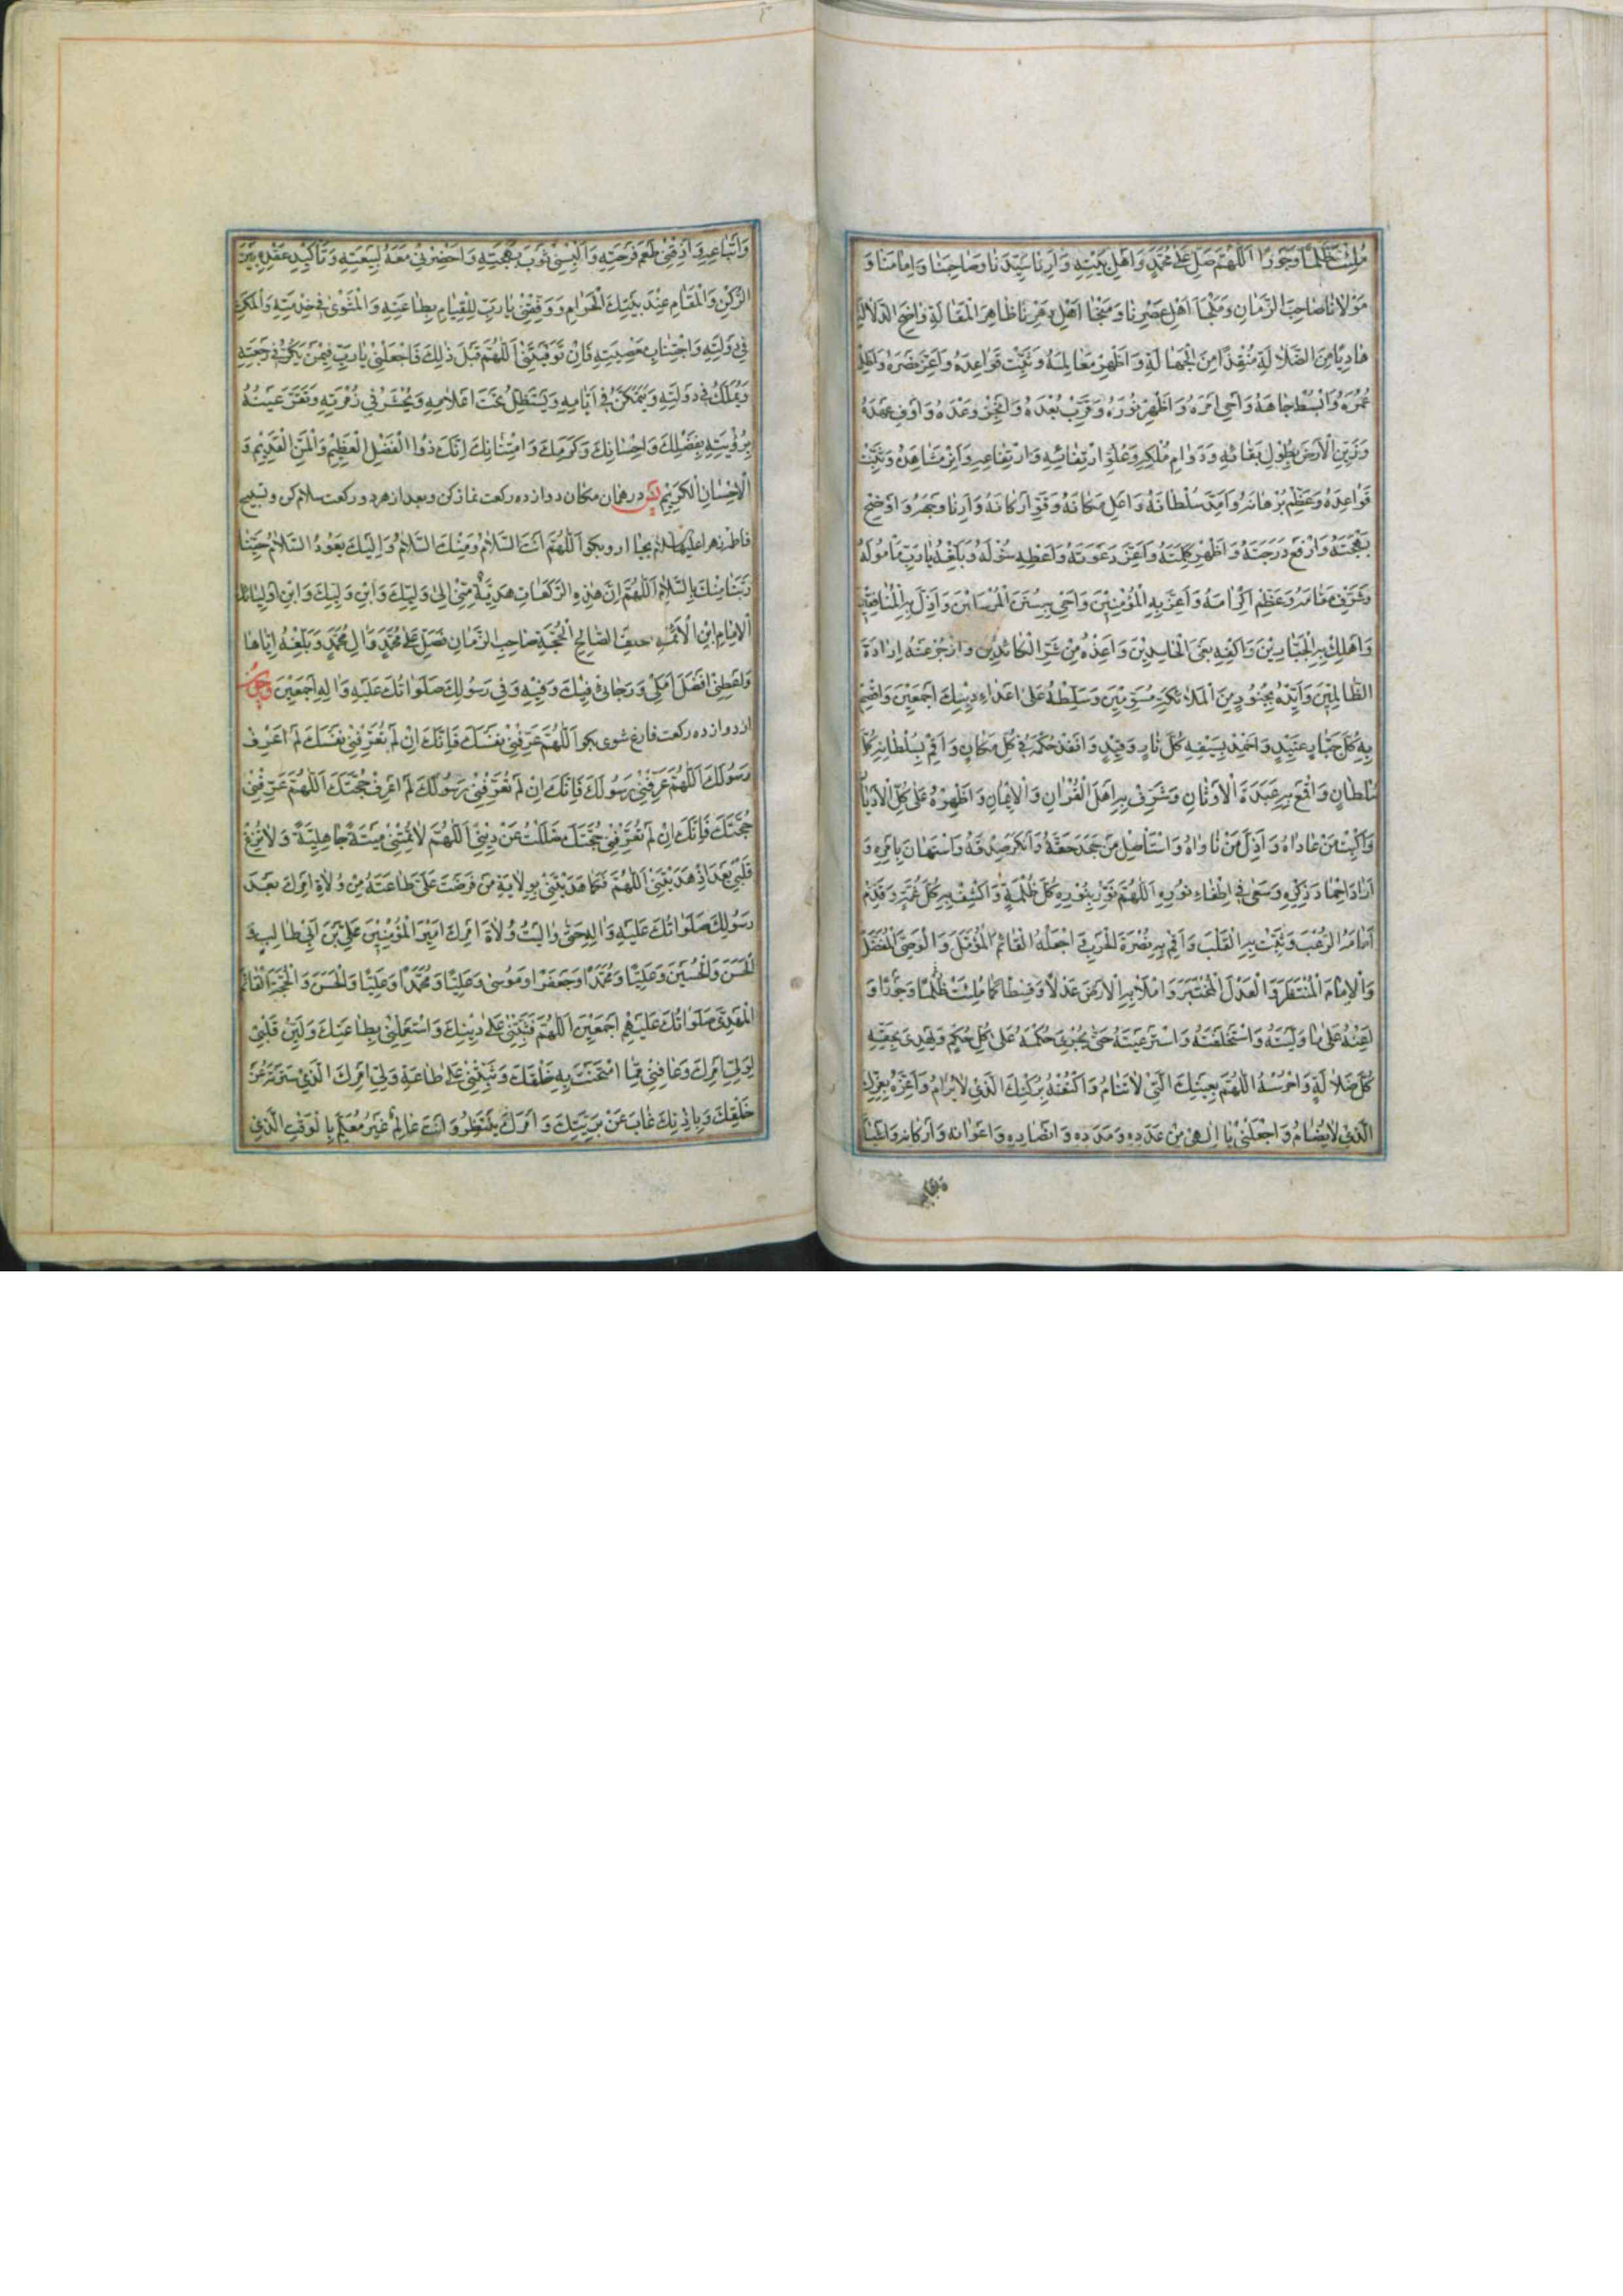 مُلِئَتْ ظُلْمًا وَجَوْرًا اَللّٰهُمَّ صَلِّ عَلٰى مُحَمَّدٍ وَاَهْلِ بَيْتِهِ وَاَرِنَا سَيِّدَنَا وَصَاحِبَنَا وَاِمَامَنَا وَ
مَوْلَانَا صَاحِبَ الزَّمَانِ وَمَلْجَأَ اَهْلِ عَصْرِنَا وَمَنْجَا اَهْلِ دَهْرِنَا ظَاهِرَ الْمَقَالَةِ وَاضِحَ الدَّلَالَةِ
هَادِيًا مِنَ الضَّلَالَةِ مُنْقِذًا مِنَ الْجَهَالَةِ وَاَظْهِرْ مَعَالِمَهُ وَثَبِّتْ قَوَاعِدَهُ وَاَعِزَّ نَصْرَهُ وَاَطِلْ
عُمْرَهُ وَابْسُطْ جَاهَهُ وَاَحْيِ اَمْرَهُ وَاَظْهِرْ نُورَهُ وَقَرِّبْ بُعْدَهُ وَاَنْجِزْ وَعْدَهُ وَاَوْفِ عَهْدَهُ
وَزَيِّنِ الْاَرْضَ بِطُولِ بَقَائِهِ وَدَوَامِ مُلْكِهِ وَعُلُوِّ ارْتِقَائِهِ وَارْتِفَاعِهِ وَاَنِرْ مَشَاهِدَهُ وَثَبِّتْ
قَوَاعِدَهُ وَعَظِّمْ بُرْهَانَهُ وَاَمِدَّ سُلْطَانَهُ وَاَعْلِ مَكَانَهُ وَقَوِّ اَرْكَانَهُ وَاَرِنَا وَجْهَهُ وَاَوْضِحْ
بَهْجَتَهُ وَارْفَعْ دَرَجَتَهُ وَاَظْهِرْ كَلِمَتَهُ وَاَعِزَّ دَعْوَتَهُ وَاَعْطِهِ سُؤْلَهُ وَبَلِّغْهُ يَا رَبِّ مَأْمُولَهُ
وَشَرِّفْ مَقَامَهُ وَعَظِّمْ اِكْرَامَهُ وَاَعِزَّ بِهِ الْمُؤْمِنِيْنَ وَاَحْيِ بِهِ سُنَنَ الْمُرْسَلِيْنَ وَاَذِلَّ بِهِ الْمُنَافِقِيْنَ
وَاَهْلِكْ بِهِ الْجَبَّارِيْنَ وَاكْفِهِ بَغْيَ الْحَاسِدِيْنَ وَاَعِذْهُ مِنْ شَرِّ الْكَائِدِيْنَ وَازْجُرْ عَنْهُ اِرَادَةَ
الظَّالِمِيْنَ وَاَيِّدْهُ بِجُنُودٍ مِنَ الْمَلَائِكَةِ مُسَوِّمِيْنَ وَسَلِّطْهُ عَلٰى اَعْدَاءِ دِيْنِكَ اَجْمَعِيْنَ وَاقْصِمْ
بِهِ كُلَّ جَبَّارٍ عَنِيْدٍ وَاَخْمِدْ بِسَيْفِهِ كُلَّ نَارٍ وَقِيْدٍ وَاَنْفِذْ حُكْمَهُ فِي كُلِّ مَكَانٍ وَاَقِمْ بِسُلْطَانِهِ كُلَّ
سُلْطَانٍ وَاقْمَعْ بِهِ عَبَدَةَ الْاَوْثَانِ وَشَرِّفْ بِهِ اَهْلَ الْقُرْاٰنِ وَالْاِيْمَانِ وَاَظْهِرْهُ عَلٰى كُلِّ الْاَدْيَانِ
وَاكْبِتْ مَنْ عَادَاهُ وَاَذِلَّ مَنْ نَاوَاهُ وَاسْتَأْصِلْ مَنْ جَحَدَ حَقَّهُ وَاَنْكَرَ صِدْقَهُ وَاسْتَهَانَ بِاَمْرِهِ وَ
اَرَادَ اِخْمَادَ ذِكْرِهِ وَسَعٰى فِي اِطْفَاءِ نُورِهِ اَللّٰهُمَّ نَوِّرْ بِنُوْرِهِ كُلَّ ظُلْمَةٍ وَاكْشِفْ بِهِ كُلَّ غُمَّةٍ وَقَدِّمْ
اَمَامَهُ الرُّعْبَ وَثَبِّتْ بِهِ الْقَلْبَ وَاَقِمْ بِهِ نُصْرَةَ الْحَرْبِ وَاجْعَلْهُ الْقَائِمَ الْمُؤَمَّلَ وَالْوَصِيَّ الْمُفَضَّلَ
وَالْاِمَامَ الْمُنْتَظَرَ وَالْعَدْلَ الْمُخْتَبَرَ وَامْلَأْ بِهِ الْاَرْضَ عَدْلًا وَقِسْطًا كَمَا مُلِئَتْ ظُلْمًا وَجَوْرًا وَ
اَعِنْهُ عَلٰى مَا وَلَّيْتَهُ وَاسْتَخْلَفْتَهُ وَاسْتَرْعَيْتَهُ حَتّٰى يَجْرِيَ حُكْمُهُ عَلٰى كُلِّ حُكْمٍ وَيَهْدِيَ بِحَقِّهِ
كُلَّ ضَلَالَةٍ وَاحْرُسْهُ اللّٰهُمَّ بِعَيْنِكَ الَّتِي لَا تَنَامُ وَاكْنُفْهُ بِرُكْنِكَ الَّذِي لَا يُرَامُ وَاَعِزَّهُ بِعِزِّكَ
الَّذِي لَا يُضَامُ وَاجْعَلْنِي يَا اِلٰهِيْ مِنْ عَدَدِهِ وَمَدَدِهِ وَاَنْصَارِهِ وَاَعْوَانِهِ وَاَرْكَانِهِ وَاَشْيَاعِهِ
وَاَتْبَاعِهِ وَاَذِقْنِي طَعْمَ فَرْحَتِهِ وَاَلْبِسْنِي ثَوْبَ بَهْجَتِهِ وَاَحْضِرْنِي مَعَهُ لِبَيْعَتِهِ وَتَأْكِيْدِ عَقْدِهِ بَيْنَ
الرُّكْنِ وَالْمَقَامِ عِنْدَ بَيْتِكَ الْحَرَامِ وَوَفِّقْنِي يَا رَبِّ لِلْقِيَامِ بِطَاعَتِهِ وَالْمَثْوٰى فِي خِدْمَتِهِ وَالْمَكْثِ
فِي دَوْلَتِهِ وَاجْتِنَابِ مَعْصِيَتِهِ فَاِنْ تَوَفَّيْتَنِي اَللّٰهُمَّ قَبْلَ ذٰلِكَ فَاجْعَلْنِي يَا رَبِّ فِيْمَنْ يَكِرُّ فِي رَجْعَتِهِ
وَيُمَلَّكُ فِي دَوْلَتِهِ وَيَتَمَكَّنُ فِي اَيَّامِهِ وَيَسْتَظِلُّ تَحْتَ اَعْلَامِهِ وَيُحْشَرُ فِي زُمْرَتِهِ وَتَقَرُّ عَيْنُهُ
بِرُؤْيَتِهِ بِفَضْلِكَ وَاِحْسَانِكَ وَكَرَمِكَ وَامْتِنَانِكَ اِنَّكَ ذُو الْفَضْلِ الْعَظِيْمِ وَالْمَنِّ الْقَدِيْمِ وَ
الْاِحْسَانِ الْكَرِيْمِ پس در همان مكان دوازده ركعت نماز كن و بعد از هر دو ركعت سلام كن و تسبيح
فاطمه زهرا عليها السلام بجا آر و بكو اَللّٰهُمَّ اَنْتَ السَّلَامُ وَمِنْكَ السَّلَامُ وَاِلَيْكَ يَعُوْدُ السَّلَامُ حَيِّنَا
رَبَّنَا مِنْكَ بِالسَّلَامِ اَللّٰهُمَّ اِنَّ هٰذِهِ الرَّكَعَاتِ هَدِيَّةٌ مِنِّي اِلٰى وَلِيِّكَ وَابْنِ وَلِيِّكَ وَابْنِ اَوْلِيَائِكَ
الْاِمَامِ ابْنِ الْاَئِمَّةِ الصَّالِحِ الْحُجَّةِ صَاحِبِ الزَّمَانِ فَصَلِّ عَلٰى مُحَمَّدٍ وَاٰلِ مُحَمَّدٍ وَبَلِّغْهُ اِيَّاهَا
وَاَعْطِنِي اَفْضَلَ اَمَلِي وَرَجَائِي فِيْكَ وَفِيْهِ وَفِي رَسُوْلِكَ صَلَوَاتُكَ عَلَيْهِ وَاٰلِهِ اَجْمَعِيْنَ وچون
از دوازده ركعت فارغ شوى بكو اَللّٰهُمَّ عَرِّفْنِي نَفْسَكَ فَاِنَّكَ اِنْ لَمْ تُعَرِّفْنِي نَفْسَكَ لَمْ اَعْرِفْ
رَسُوْلَكَ اَللّٰهُمَّ عَرِّفْنِي رَسُوْلَكَ فَاِنَّكَ اِنْ لَمْ تُعَرِّفْنِي رَسُوْلَكَ لَمْ اَعْرِفْ حُجَّتَكَ اَللّٰهُمَّ عَرِّفْنِي
حُجَّتَكَ فَاِنَّكَ اِنْ لَمْ تُعَرِّفْنِي حُجَّتَكَ ضَلَلْتُ عَنْ دِيْنِي اَللّٰهُمَّ لَا تُمِتْنِي مِيْتَةً جَاهِلِيَّةً وَلَا تُزِغْ
قَلْبِي بَعْدَ اِذْ هَدَيْتَنِي اَللّٰهُمَّ فَكَمَا هَدَيْتَنِي بِوِلَايَةِ مَنْ فَرَضْتَ عَلَيَّ طَاعَتَهُ مِنْ وُلَاةِ اَمْرِكَ بَعْدَ
رَسُوْلِكَ صَلَوَاتُكَ عَلَيْهِ وَاٰلِهِ حَتّٰى وَالَيْتُ وُلَاةَ اَمْرِكَ اَمِيْرَ الْمُؤْمِنِيْنَ عَلِيَّ بْنَ اَبِي طَالِبٍ وَ
الْحَسَنَ وَالْحُسَيْنَ وَعَلِيًّا وَمُحَمَّدًا وَجَعْفَرًا وَمُوسٰى وَعَلِيًّا وَمُحَمَّدًا وَعَلِيًّا وَالْحَسَنَ وَالْحُجَّةَ الْقَائِمَ
الْمَهْدِيَّ صَلَوَاتُكَ عَلَيْهِمْ اَجْمَعِيْنَ اَللّٰهُمَّ فَثَبِّتْنِي عَلٰى دِيْنِكَ وَاسْتَعْمِلْنِي بِطَاعَتِكَ وَلَيِّنْ قَلْبِي
لِوَلِيِّ اَمْرِكَ وَعَافِنِي مِمَّا امْتَحَنْتَ بِهِ خَلْقَكَ وَثَبِّتْنِي عَلٰى طَاعَةِ وَلِيِّ اَمْرِكَ الَّذِي سَتَرْتَهُ عَنْ
خَلْقِكَ وَبِاِذْنِكَ غَابَ عَنْ بَرِيَّتِكَ وَاَمْرَكَ يَنْتَظِرُ وَاَنْتَ عَالِمٌ غَيْرُ مُعَلَّمٍ بِالْوَقْتِ الَّذِي